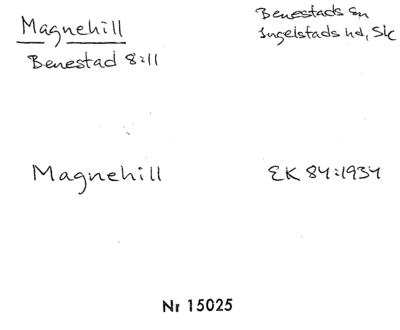 Magnehill
Benestad 8:11
Benestads sn
Ingelstads hd, Sk
Magnehill
EK 84:1934
Nr 15025